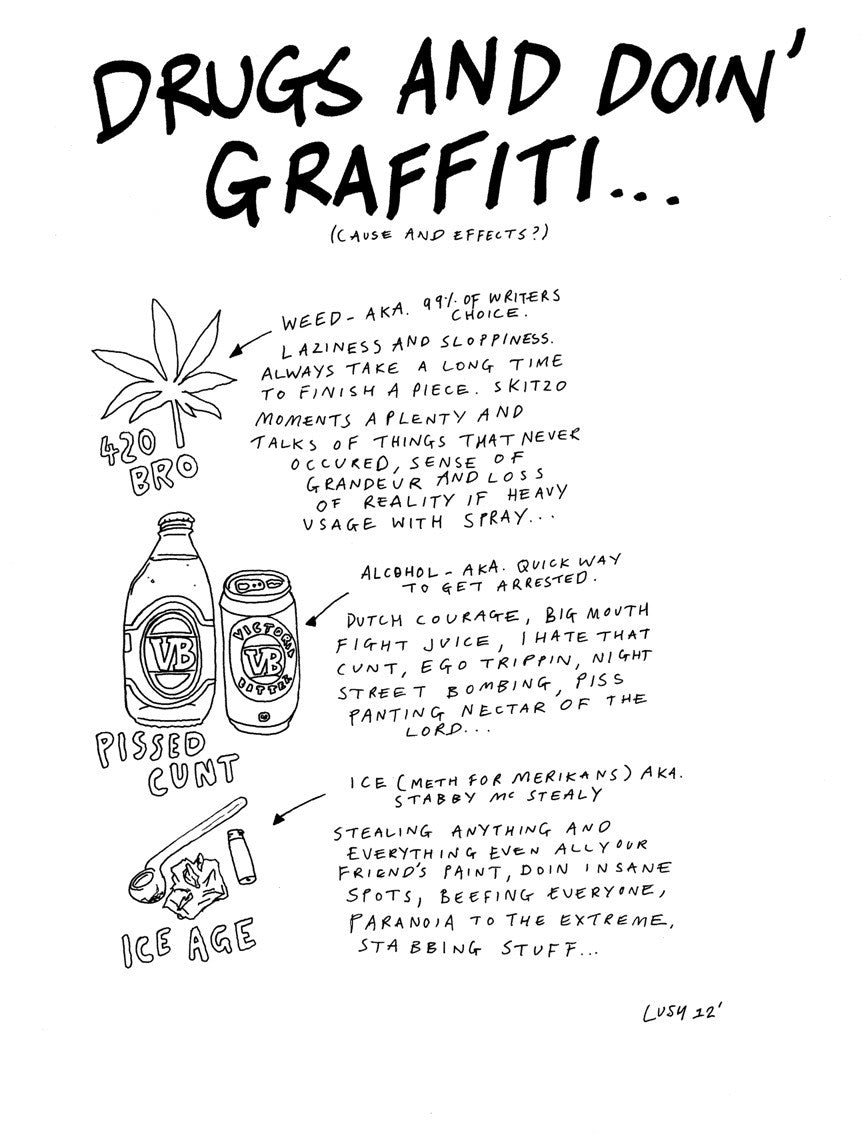 DRUGS AND DOIN'
GRAFFITI...
(CAUSE AND EFFECTS?)
WEED - AKA. 99% OF WRITERS
CHOICE.
LAZINESS AND SLOPPINESS.
ALWAYS TAKE A LONG TIME
TO FINISH A PIECE. SKITZO
MOMENTS APLENTY AND
TALKS OF THINGS THAT NEVER
OCCURED, SENSE OF
GRANDEUR AND LOSS
OF REALITY IF HEAVY
USAGE WITH SPRAY...
420
BRO
ALCOHOL - AKA. QUICK WAY
TO GET ARRESTED.
DUTCH COURAGE, BIG MOUTH
FIGHT JUICE, I HATE THAT
CUNT, EGO TRIPPIN, NIGHT
STREET BOMBING, PISS
PANTING NECTAR OF THE
LORD...
VB
VICTORIA
VB
BITTER
PISSED
CUNT
ICE (METH FOR MERIKANS) AKA.
STABBY Mc STEALY
STEALING ANYTHING AND
EVERYTHING EVEN ALL YOUR
FRIEND'S PAINT, DOIN INSANE
SPOTS, BEEFING EVERYONE,
PARANOIA TO THE EXTREME,
STABBING STUFF...
ICE AGE
LUSY 12'